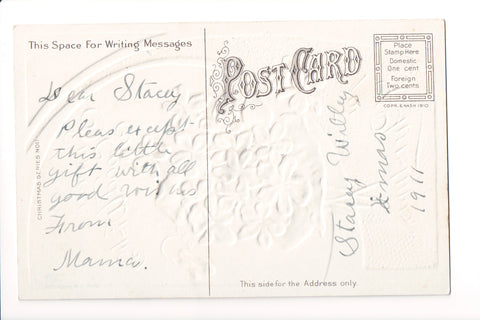 This Space For Writing Messages
POST CARD
Place
Stamp Here
Domestic
One cent
Foreign
Two cents
COPR. E. NASH 1910
CHRISTMAS SERIES NO.
Dear Stacey
Pleas except
this little
gift with all
good wishes
From
Mama.
Stacey Willey
Xmas
1911
This side for the Address only.